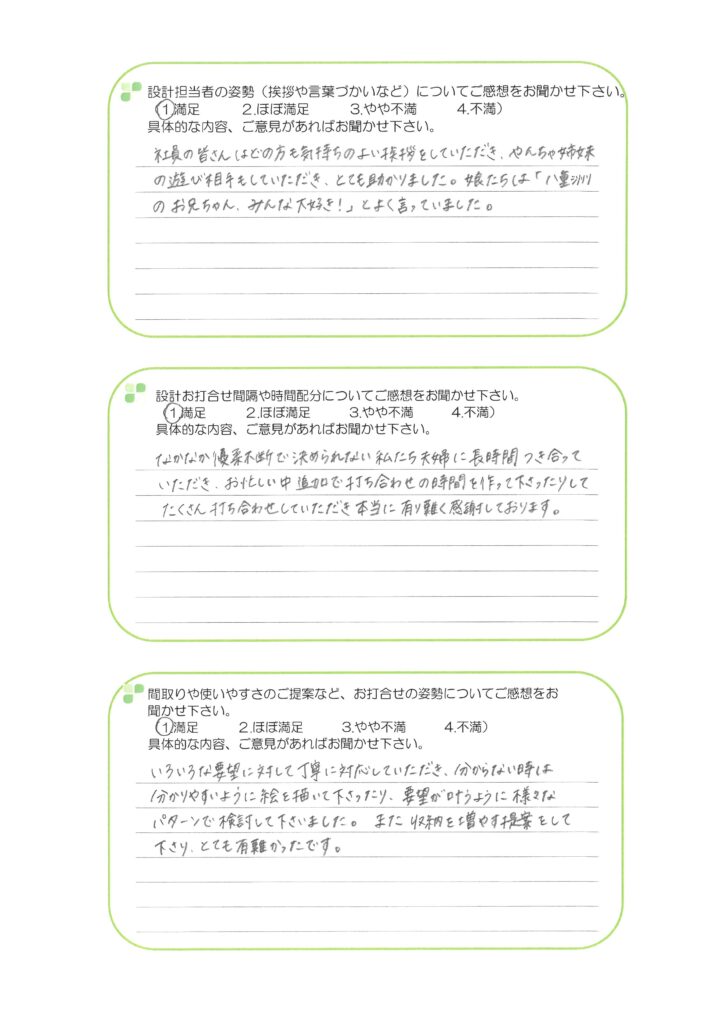 設計担当者の姿勢（挨拶や言葉づかいなど）についてご感想をお聞かせ下さい。
①満足　2.ほぼ満足　3.やや不満　4.不満）
具体的な内容、ご意見があればお聞かせ下さい。
社員の皆さんはどの方も気持ちのよい挨拶をしていただき、やんちゃ姉妹
の遊び相手もしていただき、とても助かりました。娘たちは「八重洲
のお兄ちゃん、みんな大好き！」とよく言っていました。
設計お打合せ間隔や時間配分についてご感想をお聞かせ下さい。
①満足　2.ほぼ満足　3.やや不満　4.不満）
具体的な内容、ご意見があればお聞かせ下さい。
なかなか優柔不断で決められない私たち夫婦に長時間つき合って
いただき、お忙しい中追加で打ち合わせの時間を作って下さったりして
たくさん打ち合わせしていただき本当に有り難く感謝しております。
間取りや使いやすさのご提案など、お打合せの姿勢についてご感想をお
聞かせ下さい。
①満足　2.ほぼ満足　3.やや不満　4.不満）
具体的な内容、ご意見があればお聞かせ下さい。
いろいろな要望に対して丁寧に対応していただき、分からない時は
分かりやすいように絵を描いて下さったり、要望が叶うように様々な
パターンで検討して下さいました。また収納を増やす提案をして
下さり、とても有難かったです。